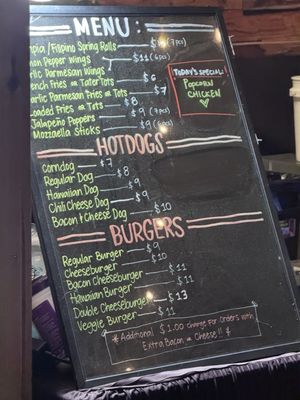 MENU:
mpia/Filipino Spring Rolls $ (7pcs)
mon Pepper Wings $11 (6pcs)
arlic Parmesan Wings
ench Fries or Tater Tots $6
arlic Parmesan Fries or Tots $7
Loaded Fries or Tots $8
Jalapeño Poppers $9 (7pcs)
Mozzaella Sticks $9 (6pcs)
Today's Special:
Popcorn
Chicken
HOTDOGS
Corndog $7
Regular Dog $8
Hawaiian Dog $9
Chili Cheese Dog $9
Bacon & Cheese Dog $10
BURGERS
Regular Burger $9
Cheeseburger $10
Bacon Cheeseburger $11
Hawaiian Burger $11
Double Cheeseburger $13
Veggie Burger $11
*Additional $1.00 charge for orders with
Extra Bacon or Cheese!! *